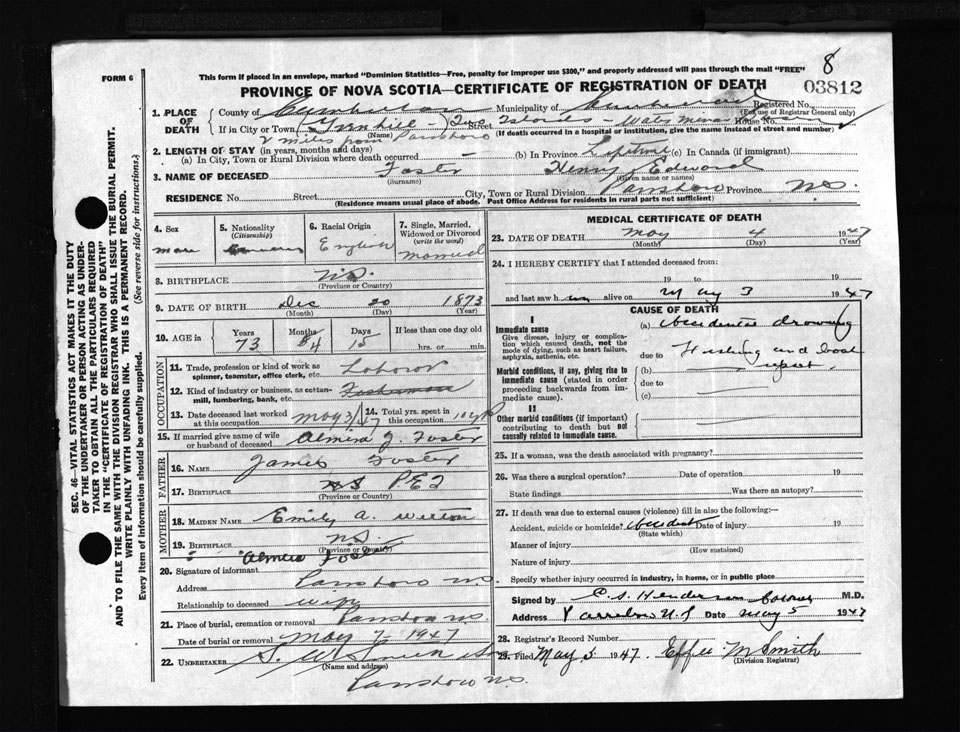 8
FORM 6
This form if placed in an envelope, marked "Dominion Statistics—Free, penalty for improper use $300," and properly addressed will pass through the mail "FREE"
03812
PROVINCE OF NOVA SCOTIA—CERTIFICATE OF REGISTRATION OF DEATH
Registered No.
(For use of Registrar General only)
1. PLACE OF DEATH
County of Cumberland Municipality of Cumberland
If in City or Town (Name) Two Islands Street House No.
2 miles from Parrsboro
(If death occurred in a hospital or institution, give the name instead of street and number)
2. LENGTH OF STAY (in years, months and days)
(a) In City, Town or Rural Division where death occurred — (b) In Province Lifetime (c) In Canada (if immigrant)
3. NAME OF DECEASED Foster Henry Edward
(Surname) (Given name or names)
RESIDENCE No. Street City, Town or Rural Division Parrsboro Province N.S.
(Residence means usual place of abode. Post Office Address for residents in rural parts not sufficient)
4. Sex
male
5. Nationality
(Citizenship)
6. Racial Origin
English
7. Single, Married, Widowed or Divorced
(write the word)
married
8. BIRTHPLACE N.S.
(Province or Country)
9. DATE OF BIRTH Dec 20 1873
(Month) (Day) (Year)
10. AGE in Years Months Days If less than one day old
73 4 15 hrs. or min.
OCCUPATION
11. Trade, profession or kind of work as spinner, teamster, office clerk, etc. Laborer
12. Kind of industry or business, as cotton-mill, lumbering, bank, etc. Fisherman
13. Date deceased last worked at this occupation May 3/47
14. Total yrs. spent in this occupation 10 yrs
15. If married give name of wife or husband of deceased Almera J. Foster
FATHER
16. NAME James Foster
17. BIRTHPLACE N S P.E.I
(Province or Country)
MOTHER
18. MAIDEN NAME Emily A.
19. BIRTHPLACE N.S.
(Province or Country)
20. Signature of informant Almera Foster
Address Parrsboro N.S.
Relationship to deceased wife
21. Place of burial, cremation or removal Parrsboro N.S.
Date of burial or removal May 7 1947
22. UNDERTAKER S. W. Smith
(Name and address)
Parrsboro N.S.
MEDICAL CERTIFICATE OF DEATH
23. DATE OF DEATH May 4 1947
(Month) (Day) (Year)
24. I HEREBY CERTIFY that I attended deceased from:
19 to 19
and last saw him alive on May 3 1947
CAUSE OF DEATH
I
Immediate cause
Give disease, injury or complication which caused death, not the mode of dying, such as heart failure, asphyxia, asthenia, etc.
(a) Accidental drowning
due to Fishing and boat
Morbid conditions, if any, giving rise to immediate cause (stated in order proceeding backwards from immediate cause).
(b) upset
due to
(c)
II
Other morbid conditions (if important) contributing to death but not causally related to immediate cause.
25. If a woman, was the death associated with pregnancy?
26. Was there a surgical operation? Date of operation 19
State findings Was there an autopsy?
27. If death was due to external causes (violence) fill in also the following:—
Accident, suicide or homicide? Accident Date of injury 19
(State which)
Manner of injury
(How sustained)
Nature of injury
Specify whether injury occurred in industry, in home, or in public place
Signed by Henderson Coroner M.D.
Address Parrsboro N.S Date May 5 1947
28. Registrar's Record Number
29. Filed May 5 1947. Effie M Smith
(Division Registrar)
SEC. 46—VITAL STATISTICS ACT MAKES IT THE DUTY
OF THE UNDERTAKER OR PERSON ACTING AS UNDER-
TAKER TO OBTAIN ALL THE PARTICULARS REQUIRED
IN THE "CERTIFICATE OF REGISTRATION OF DEATH"
AND TO FILE THE SAME WITH THE DIVISION REGISTRAR WHO SHALL ISSUE THE BURIAL PERMIT.
WRITE PLAINLY WITH UNFADING INK. THIS IS A PERMANENT RECORD.
Every item of information should be carefully supplied. (See reverse side for instructions.)